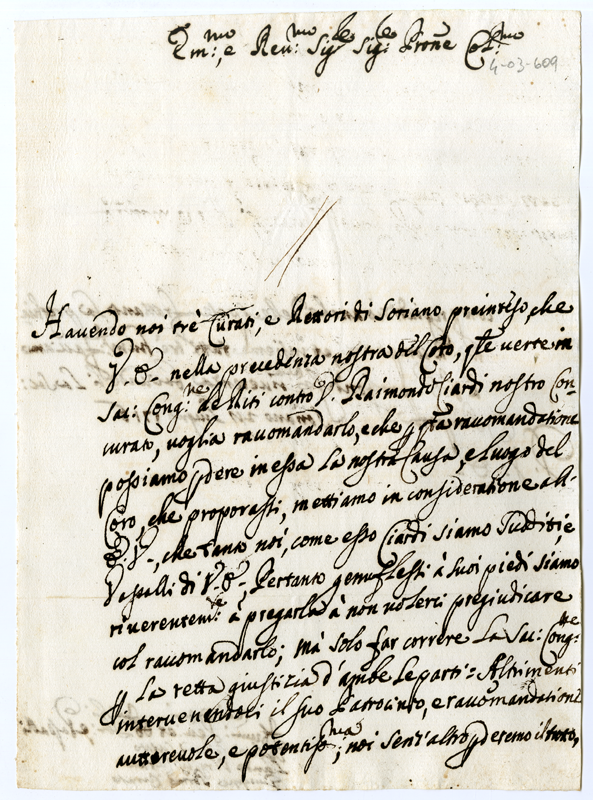 Em:mo, e Rev:mo Sig:re Sig:re Prone Col:mo
4-03-609
Havendo noi trè Curati, e Rettori di Soriano preinteso, che
V. E. nella precedenza nostra del Coro, che verte in
Sac: Cong:ne de Riti contro D. Raimondo Ciardi nostro Con-
curato, voglia raccomandarlo, e che p qta raccomandatione
possiamo pdere in essa la nostra Causa, e luogo del
Coro, che proporasti, mettiamo in consideratione all'
E. V., che tanto noi, come esso Ciardi siamo sudditi, e
Vassalli di V. E., Pertanto genuflessi à suoi piedi siamo
riverentem:te à pregarla à non volerci pregiudicare
col raccomandarlo; mà solo far correre la Sac: Cong:ne
p la retta giustitia d'ambe le parti = Altrimenti
intervenendoli il suo Patrocinio, e raccomandatione
auttorevole, e potentiss:ma; noi senz'altro pderemo il tutto,